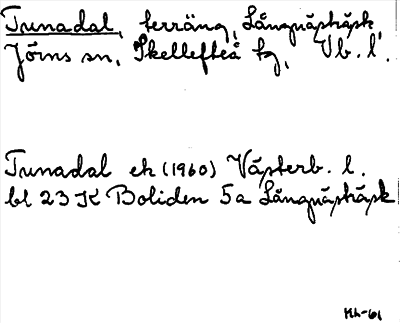 Tunadal, terräng, Långnästräsk,
Jörns sn, Skellefteå kg, Vb. l.
Tunadal ek (1960) Västerb. l.
bl 23 K Boliden 5a Långnästräsk
KL-61